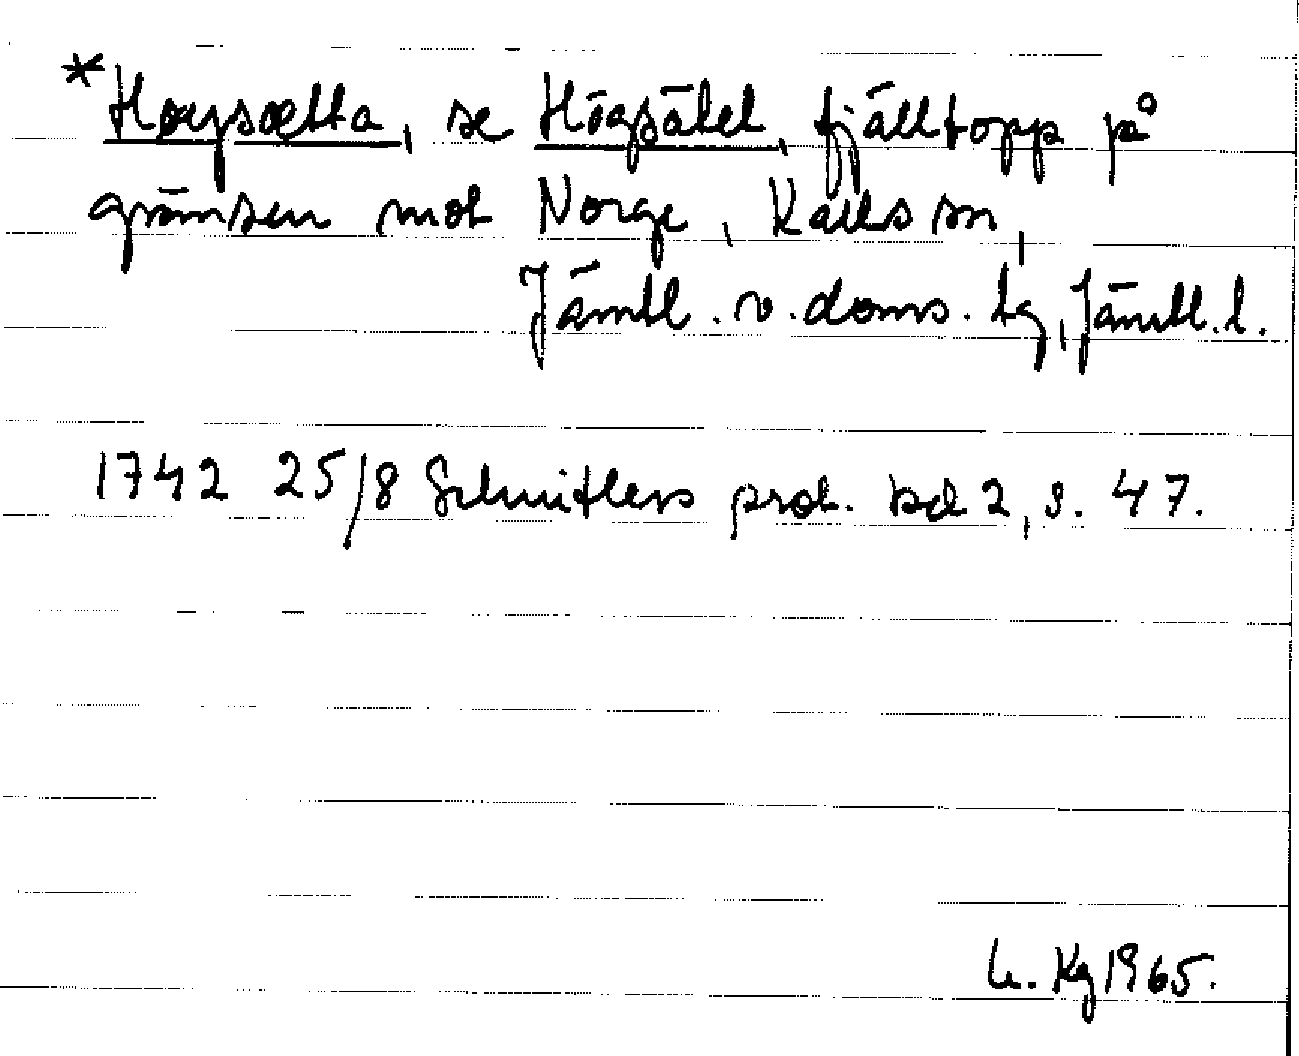 *Høysætta, se Högsätet, fjälltopp på
gränsen mot Norge, Kalls sn,
Jämtl. v. doms. tg, Jämtl. l.
1742 25/8 Schnitlers prot. bd 2, s. 47.
U. Kg 1965.